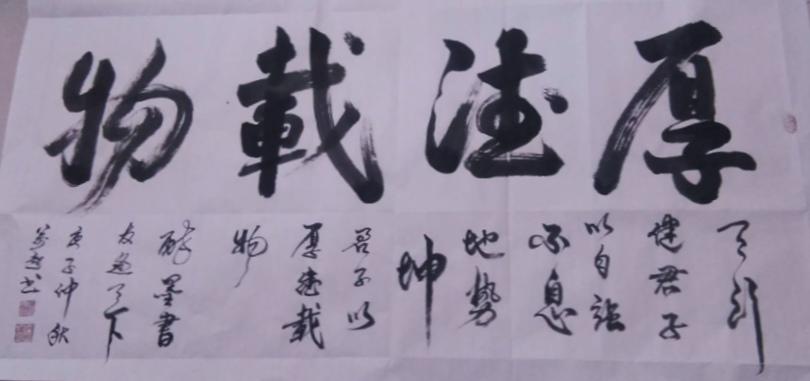 厚德載物
天行
健君子
以自強
不息
地勢
坤
君子以
厚德載
物
醉墨書
友遍天下
庚子仲秋
书